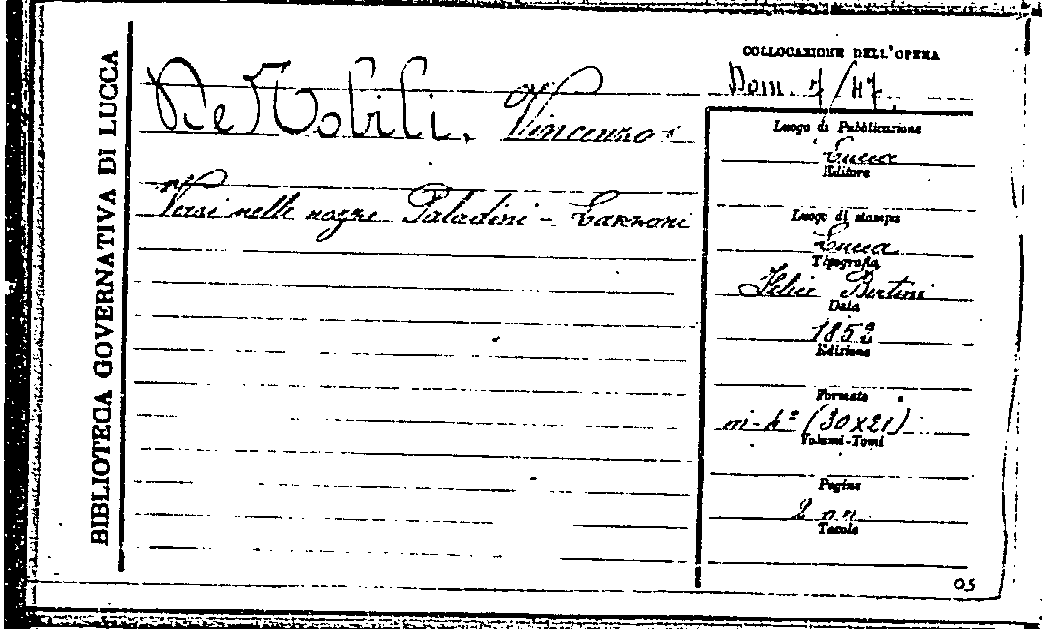 BIBLIOTECA GOVERNATIVA DI LUCCA
De Nobili. Vincenzo:
Versi nelle nozze Paladini - Garzoni
COLLOCAZIONE DELL'OPERA
Dom. 7/47.
Luogo di Pubblicazione
Lucca
Editore
Luogo di stampa
Lucca
Tipografia
Felice Bertini
Data
185
Edizione
Formato
in-4º (30x21)
Volumi-Tomi
Pagine
2 n.n.
Tavole
05